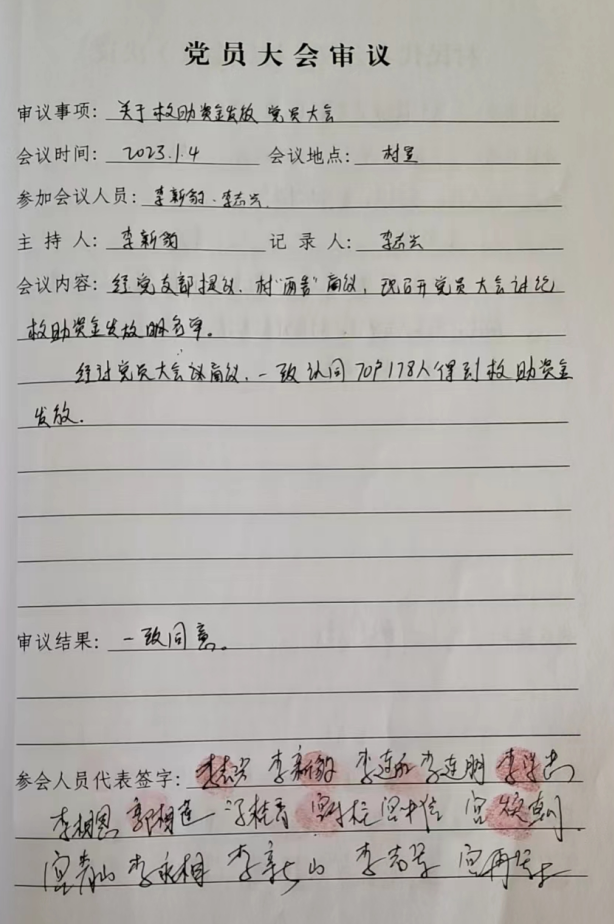 党员大会审议
审议事项：关于救助资金发放 党员大会
会议时间：2023.1.4 会议地点：村里
参加会议人员：李新豹.李志兴.
主持人：李新豹 记录人：李志兴
会议内容：经党支部提议.村"两委"商议，现召开党员大会讨论
救助资金发放的名单。
经过党员大会议商议.一致认同70户178人得到救助资金
发放.
审议结果：一致同意。
参会人员代表签字：李志兴 李新豹 李连 李连朋 李学志
李相恩 郭相莲
李永相 李新山